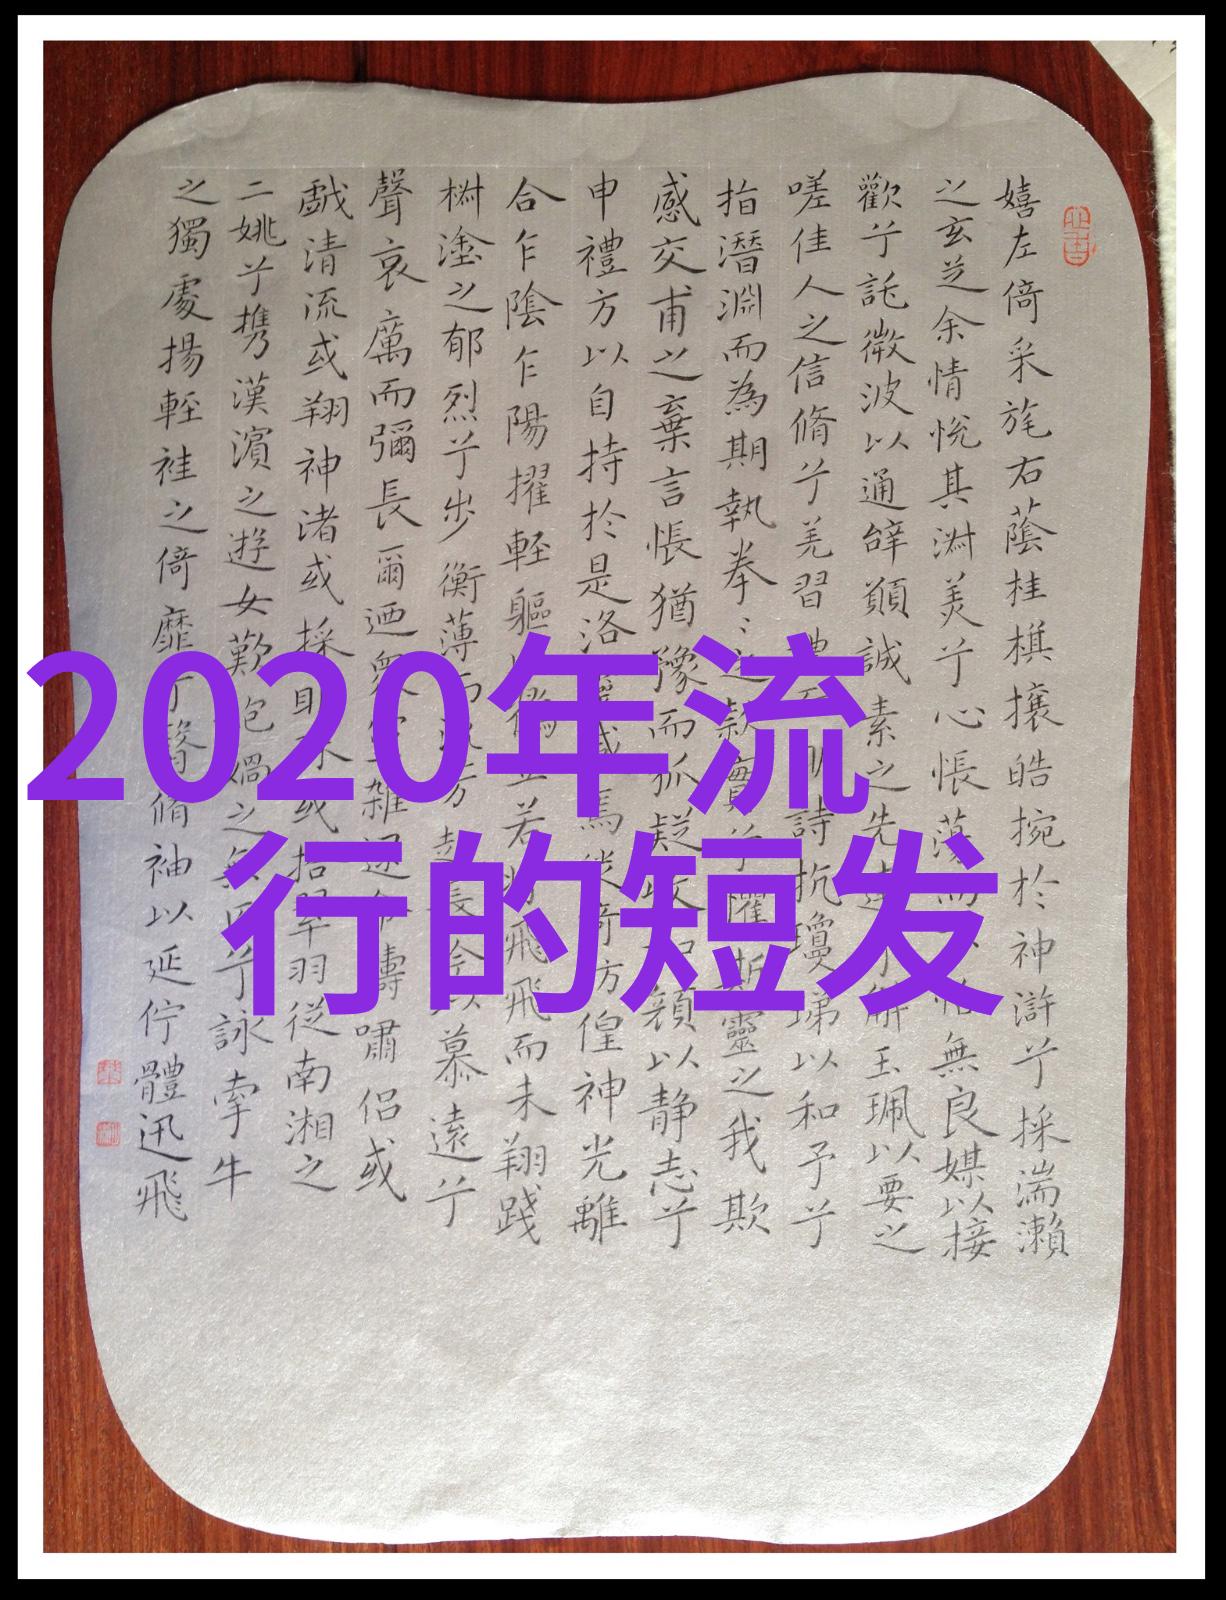 2020年流
行的短发
嬉左倚采旄右蔭桂棋攘皓捥於神滸兮採湍瀨
之玄芝余情悅其淋美兮心悵蕩而怡無良媒以接
歡兮託微波以通辝願誠素之先解玉珮以要之
嗟佳人之信脩兮羌習詩抗瓊珶以和予兮
指潛淵而為期執拳〻之款實兮懼斯靈之我欺
感交甫之棄言悵猶豫而狐疑顔以静志兮
申禮方以自持於是洛感焉徙倚方偟神光離
合乍陰乍陽擢輕軀立若將飛飛而未翔踐
椒塗之郁烈兮步衡薄而芳長吟以慕遠兮
聲哀厲而彌長爾迺眾雜遝命儔嘯侶或
戯清流或翔神渚或採或拾翠羽從南湘之
二姚兮携漢濱之遊女歎媧之無兮詠牽牛
之獨處揚輕袿之倚靡翳脩袖以延佇體迅飛